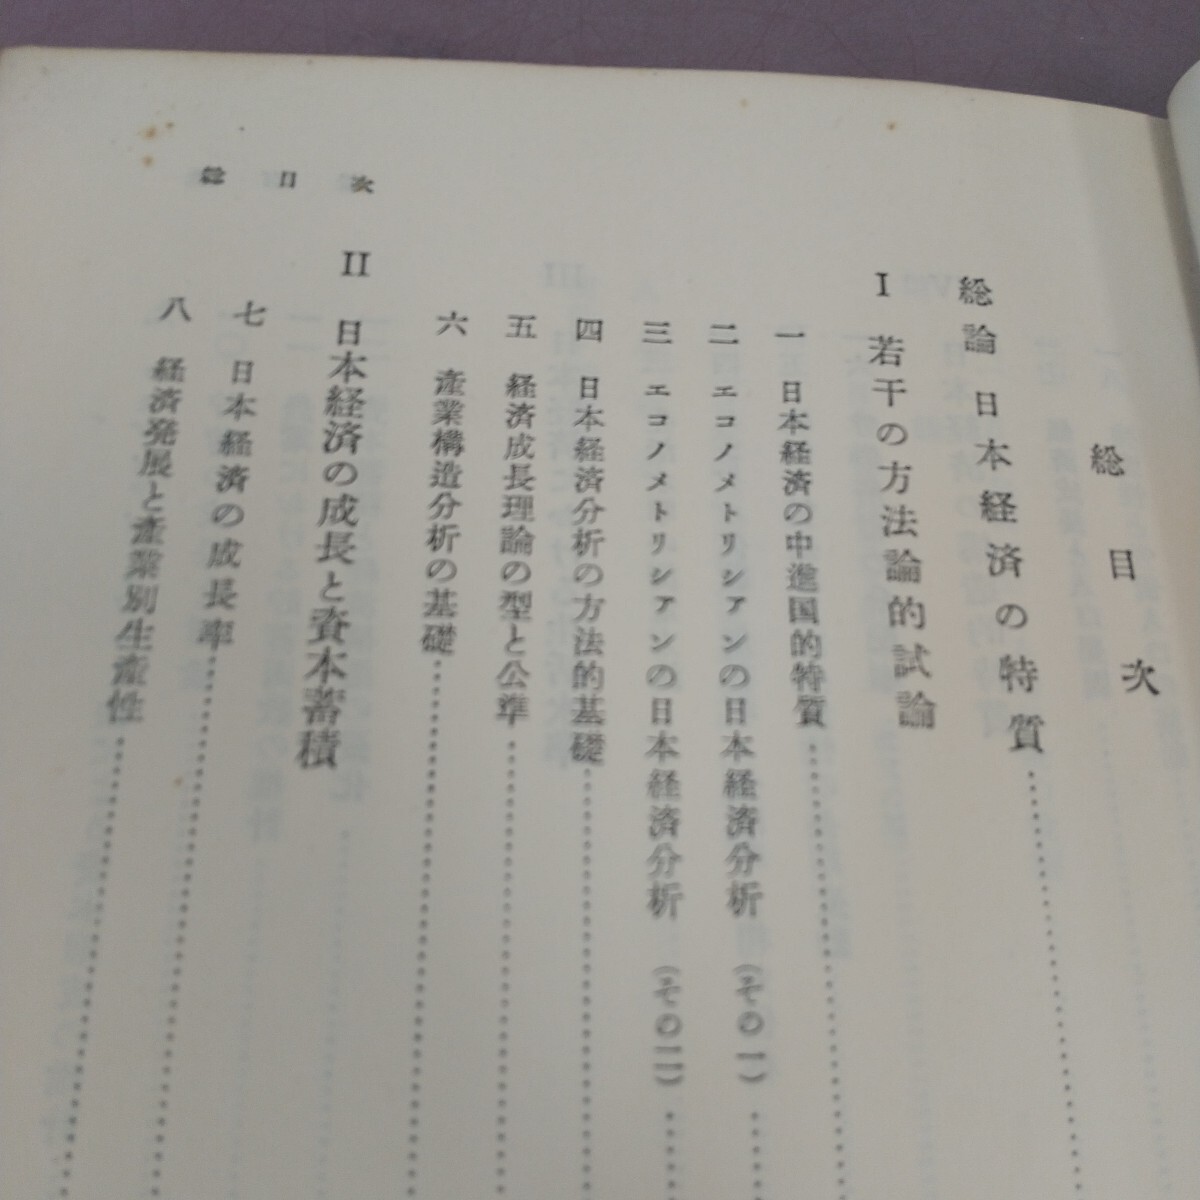 総目次
総論 日本経済の特質
I 若干の方法論的試論
一 日本経済の中進国的特質
二 エコノメトリシアンの日本経済分析 (その一)
三 エコノメトリシアンの日本経済分析 (その二)
四 日本経済分析の方法的基礎
五 経済成長理論の型と公準
六 産業構造分析の基礎
II 日本経済の成長と資本蓄積
七 日本経済の成長率
八 経済発展と産業別生産性
総目次